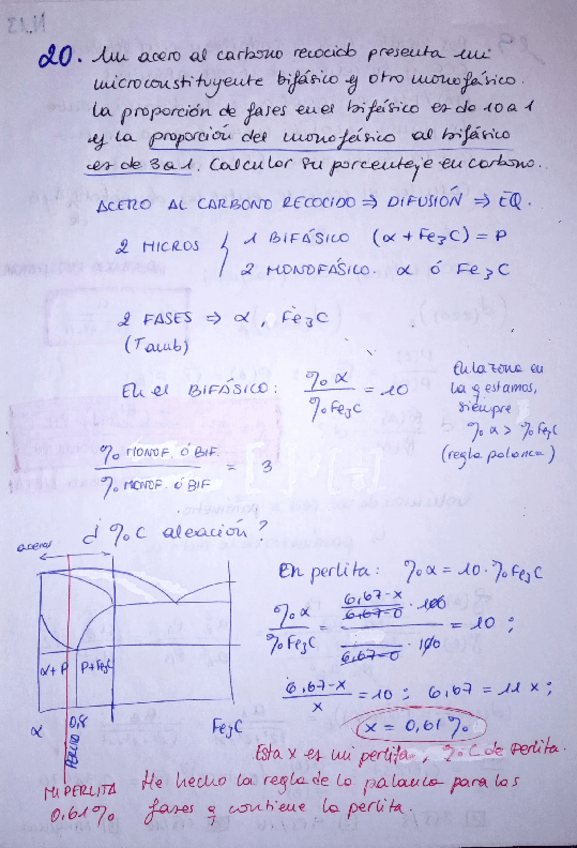 20. Un acero al carbono recocido presenta un
microconstituyente bifásico y otro monofásico.
La proporción de fases en el bifásico es de 10 a 1
y la proporción del monofásico al bifásico
es de 3 a 1. Calcular su porcentaje en carbono.
ACERO AL CARBONO RECOCIDO ⇒ DIFUSIÓN ⇒ EQ.
2 MICROS
1 BIFÁSICO (α + Fe3C) = P
2 MONOFÁSICO. α ó Fe3C
2 FASES ⇒ α, Fe3C
(Tamb)
En el BIFÁSICO: %α / %Fe3C = 10
En la zona en
la q estamos,
siempre
%α > %Fe3C
(regla palanca)
% MONOF. ó BIF. / % MONOF. ó BIF = 3
¿ %C aleación?
aceros
α+P
P+Fe3C
α
0,8
Fe3C
MI PERLITA
0,61%
En perlita: %α = 10 · %Fe3C
%α / %Fe3C = (6,67-x / 6,67-0 · 100) / ( / 6,67-0 · 100) = 10 ;
6,67-x / x = 10 ; 6,67 = 11 x ;
x = 0,61 %
Esta x es mi perlita, %C de perlita.
He hecho la regla de la palanca para las
fases q contiene la perlita.